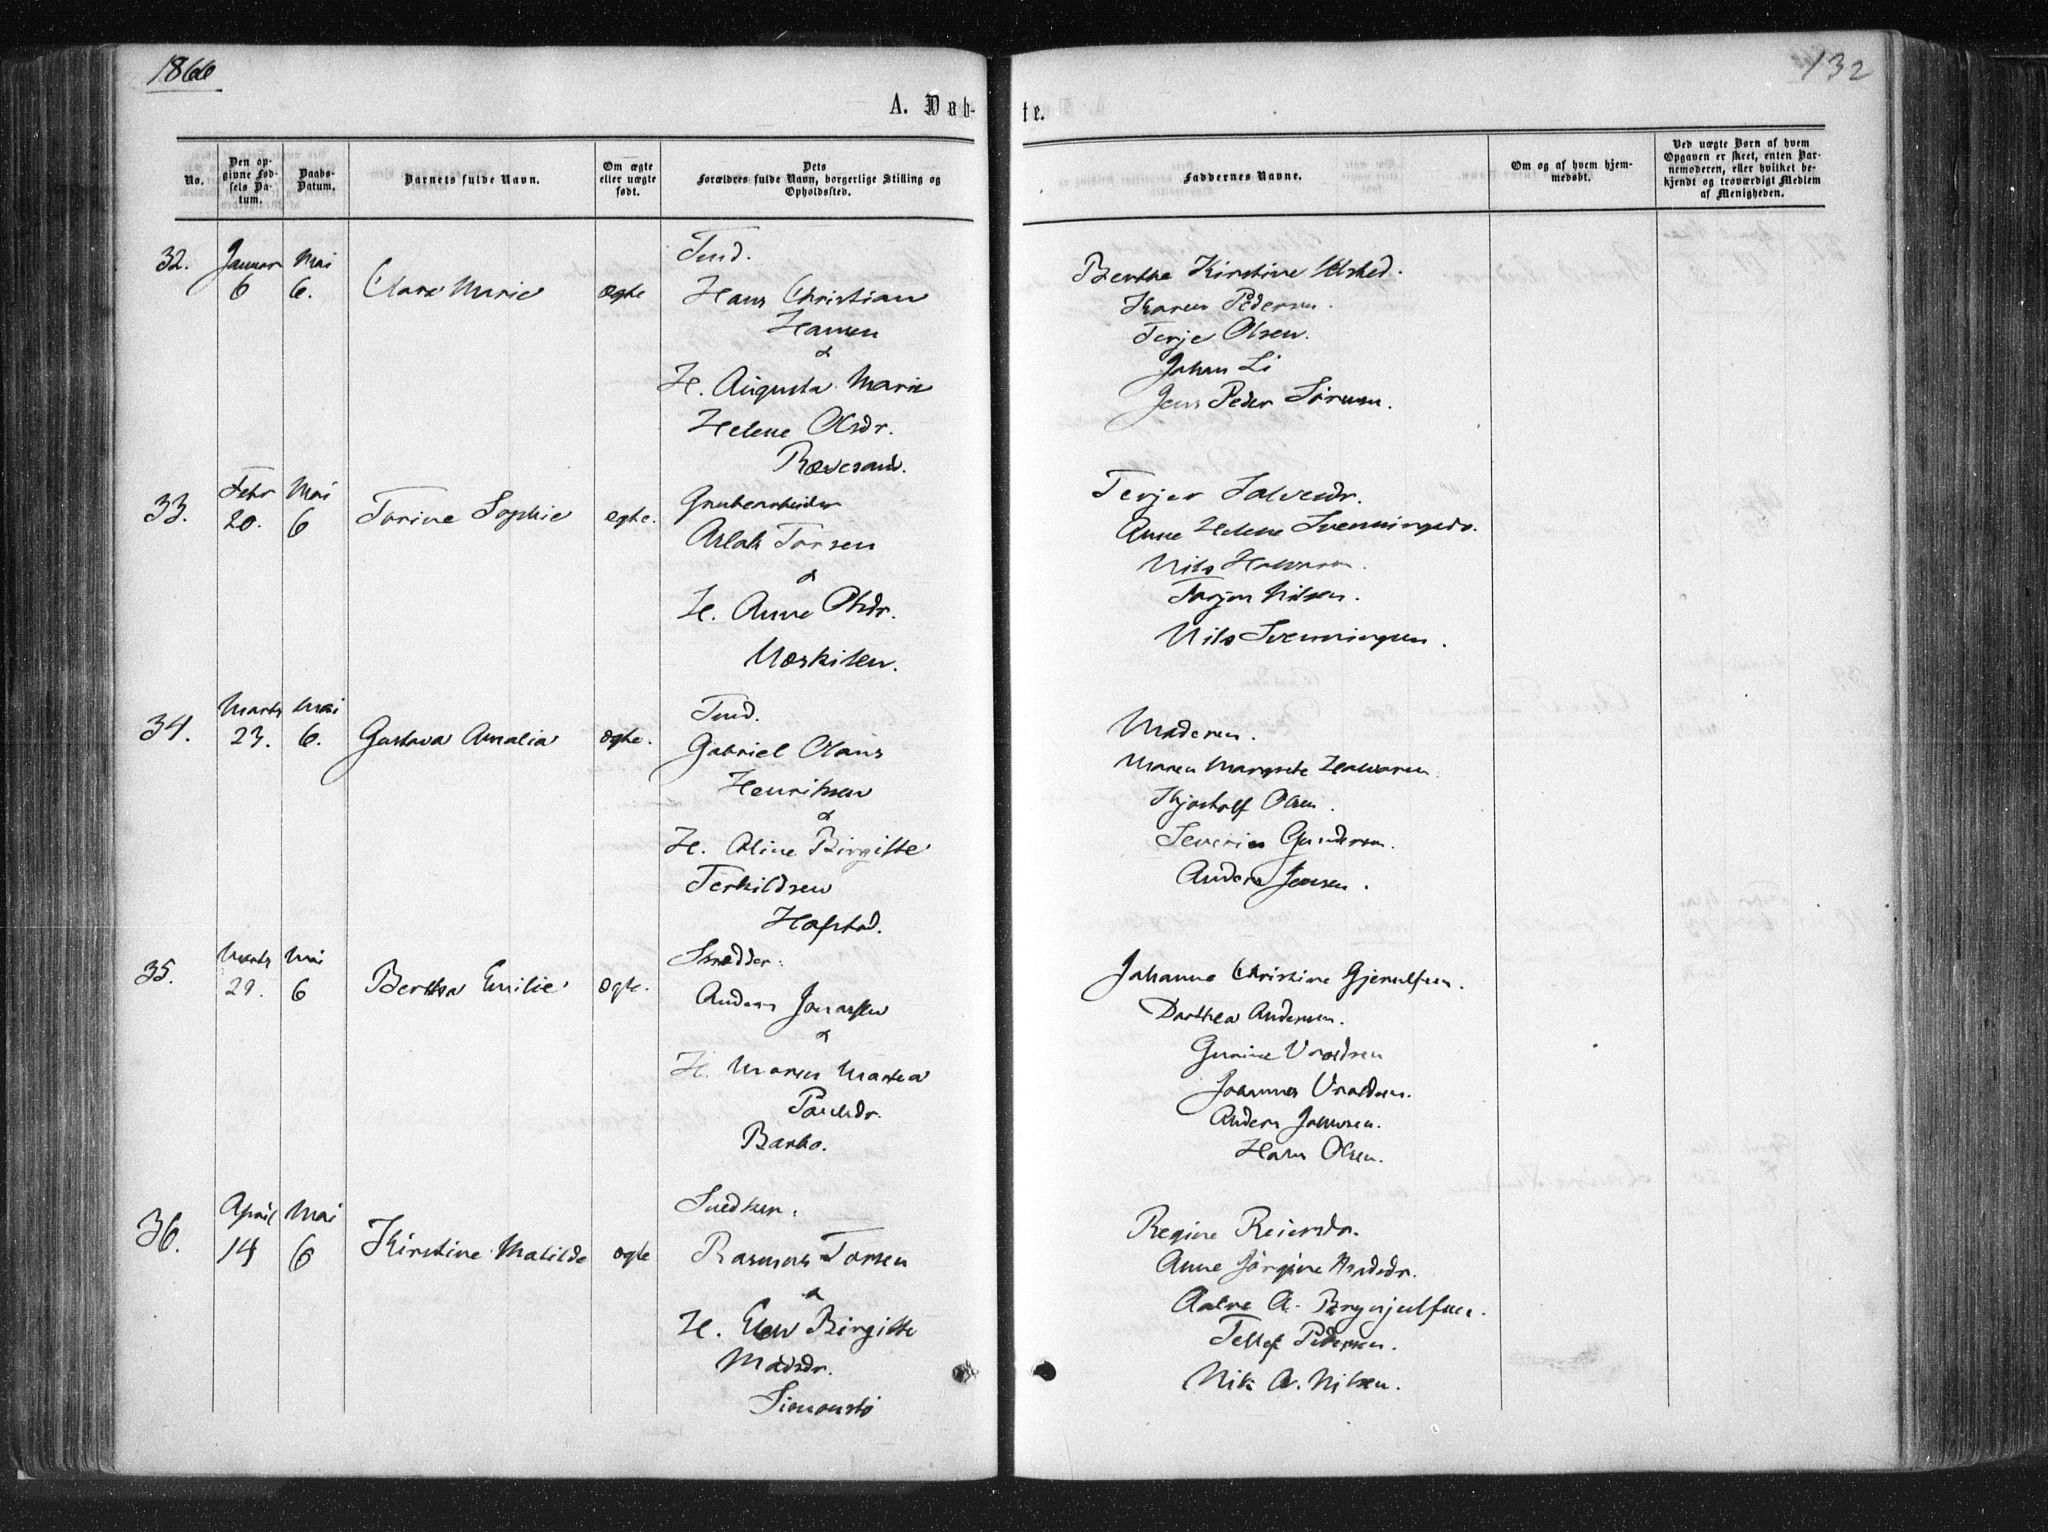 1866
132
A. Døb-
te.
No.
Den op-
givne Fød-
sels Da-
tum.
Daabs-
Datum.
Barnets fulde Navn.
Om ægte
eller uægte
født.
Dets
Forældres fulde Navn, borgerlige Stilling og
Opholdssted.
Faddernes Navne.
Om og af hvem hjem-
medøbt.
Ved uægte Børn af hvem
Opgaven er skeet, enten Bar-
nemoderen, eller hvilket be-
kjendt og troværdigt Medlem
af Menigheden.
32.
Januar
6
Mai
6.
Clara Marie
ægte
Hans Christian
Hansen
&
H. Augusta Marie
Helene Olsdr.
Rævesand.
Berthe Kirstine Ulsted.
Karen Pedersen.
Terje Olsen.
Johan Li
Jens Peder Sörensen.
33.
Febr
20.
Mai
6
Torine Sophie
ægte.
Grubearbeider
Aslak Torsen
&
H. Anne Olsdr.
Næskilen.
Terjer Salvesdr.
Anne Helene Svenningsdr.
Nils Halvorsen.
Torjer Nilsen.
Nils Svenningsen.
34.
Marts
23.
Mai
6.
Gustava Amalia
ægte.
Gabriel Olaus
Henriksen
&
H. Oline Birgitte
Terkildsen
Hafstad.
Moderen.
Maren Margrete Halvorsen
Kjøstolf Olsen.
Severin Gundersen.
Anders Jensen.
35.
Marts
29.
Mai
6
Bertha Emilie
ægte.
Skrædder.
Anders Jonassen
&
H. Maren Martea
Paulsdr.
Barbo.
Johanne Christine Gjerulfsen.
Dorthea Andersen.
Gunine Vraalsen
Johannes Vraalsen.
Anders Johnsen.
Hans Olsen.
36.
April
14
Mai
6
Kirstine Matilde
ægte
Snedker.
Rasmus Torsen
&
H. Elen Birgitte
Madsdr.
Simonstø
Regine Reiersdr.
Anne Jörgine
A.
Tellef Pedersen.
Nils A. Nilsen.